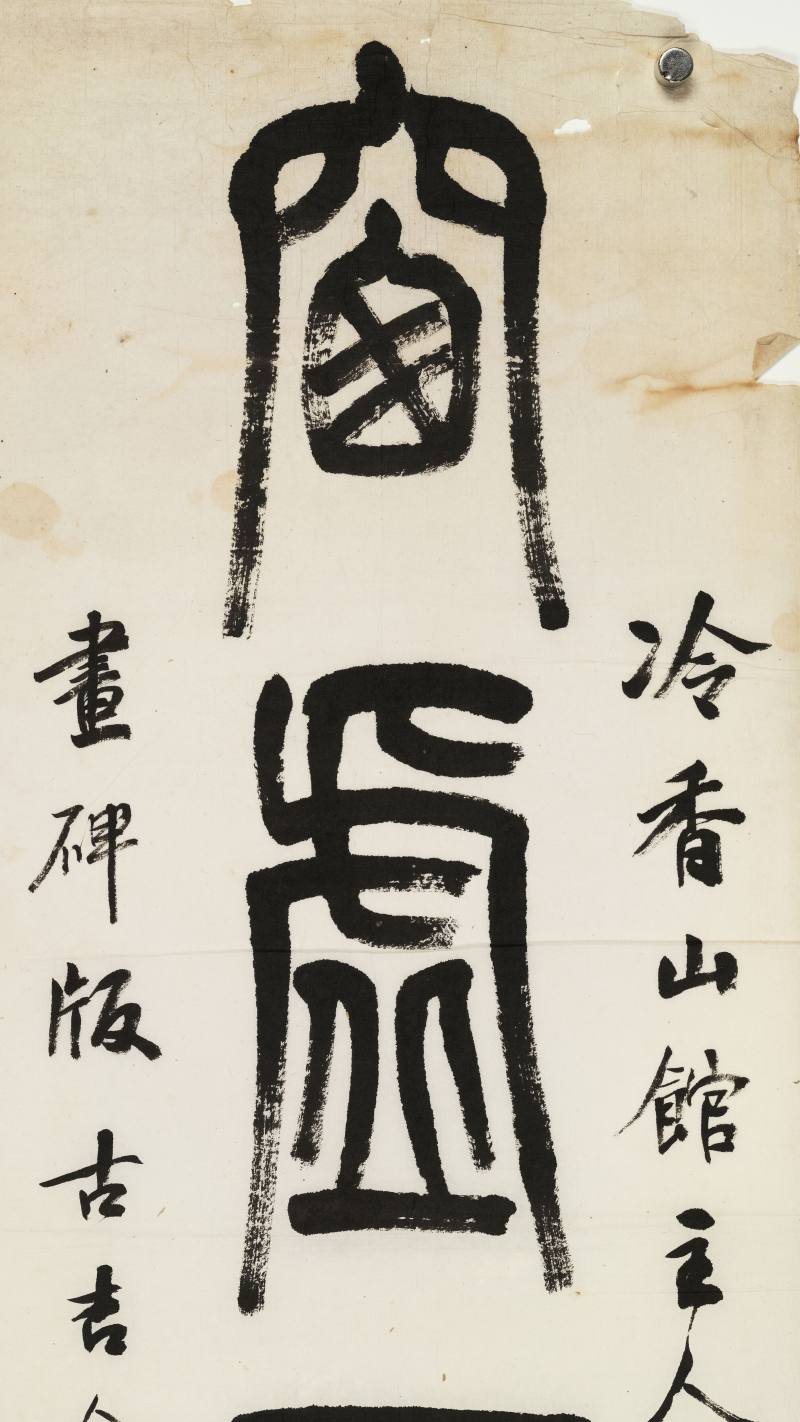 冷香山館主人
窗虛
畫碑版古吉